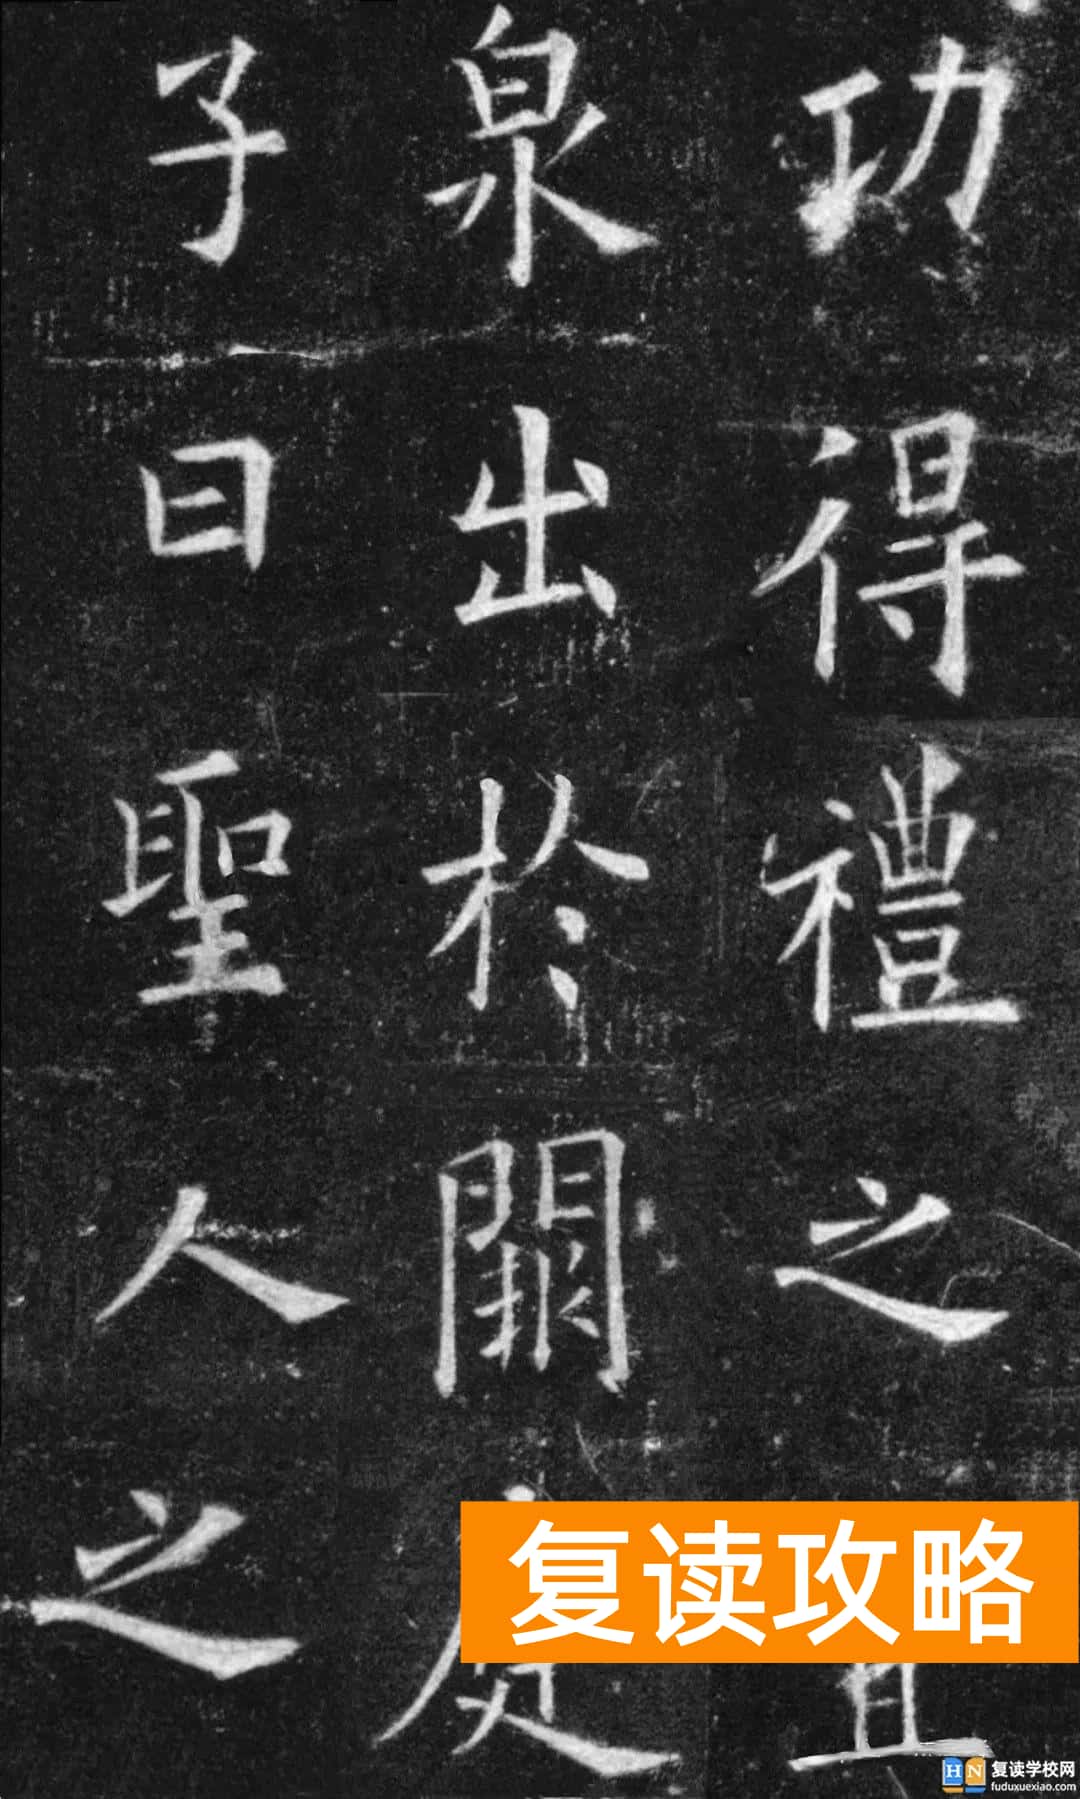 功得禮之宜
泉出於闕庭
子曰聖人之
复读攻略
HN 复读学校网
fuduxuexiao.com